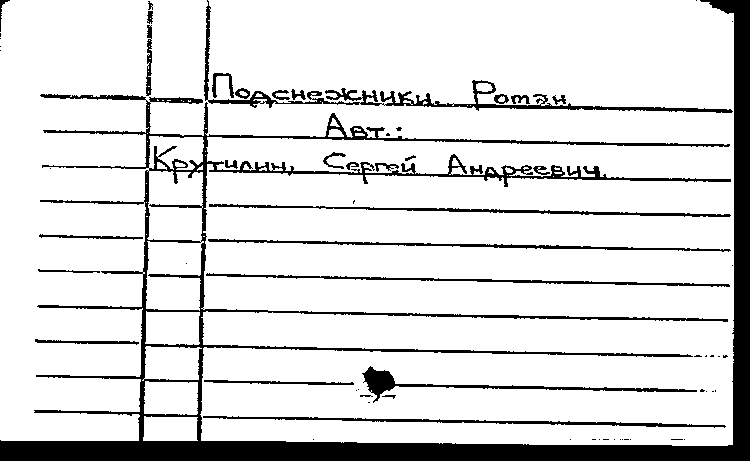 Подснежники. Роман.
Авт.:
Крутилин, Сергей Андреевич.